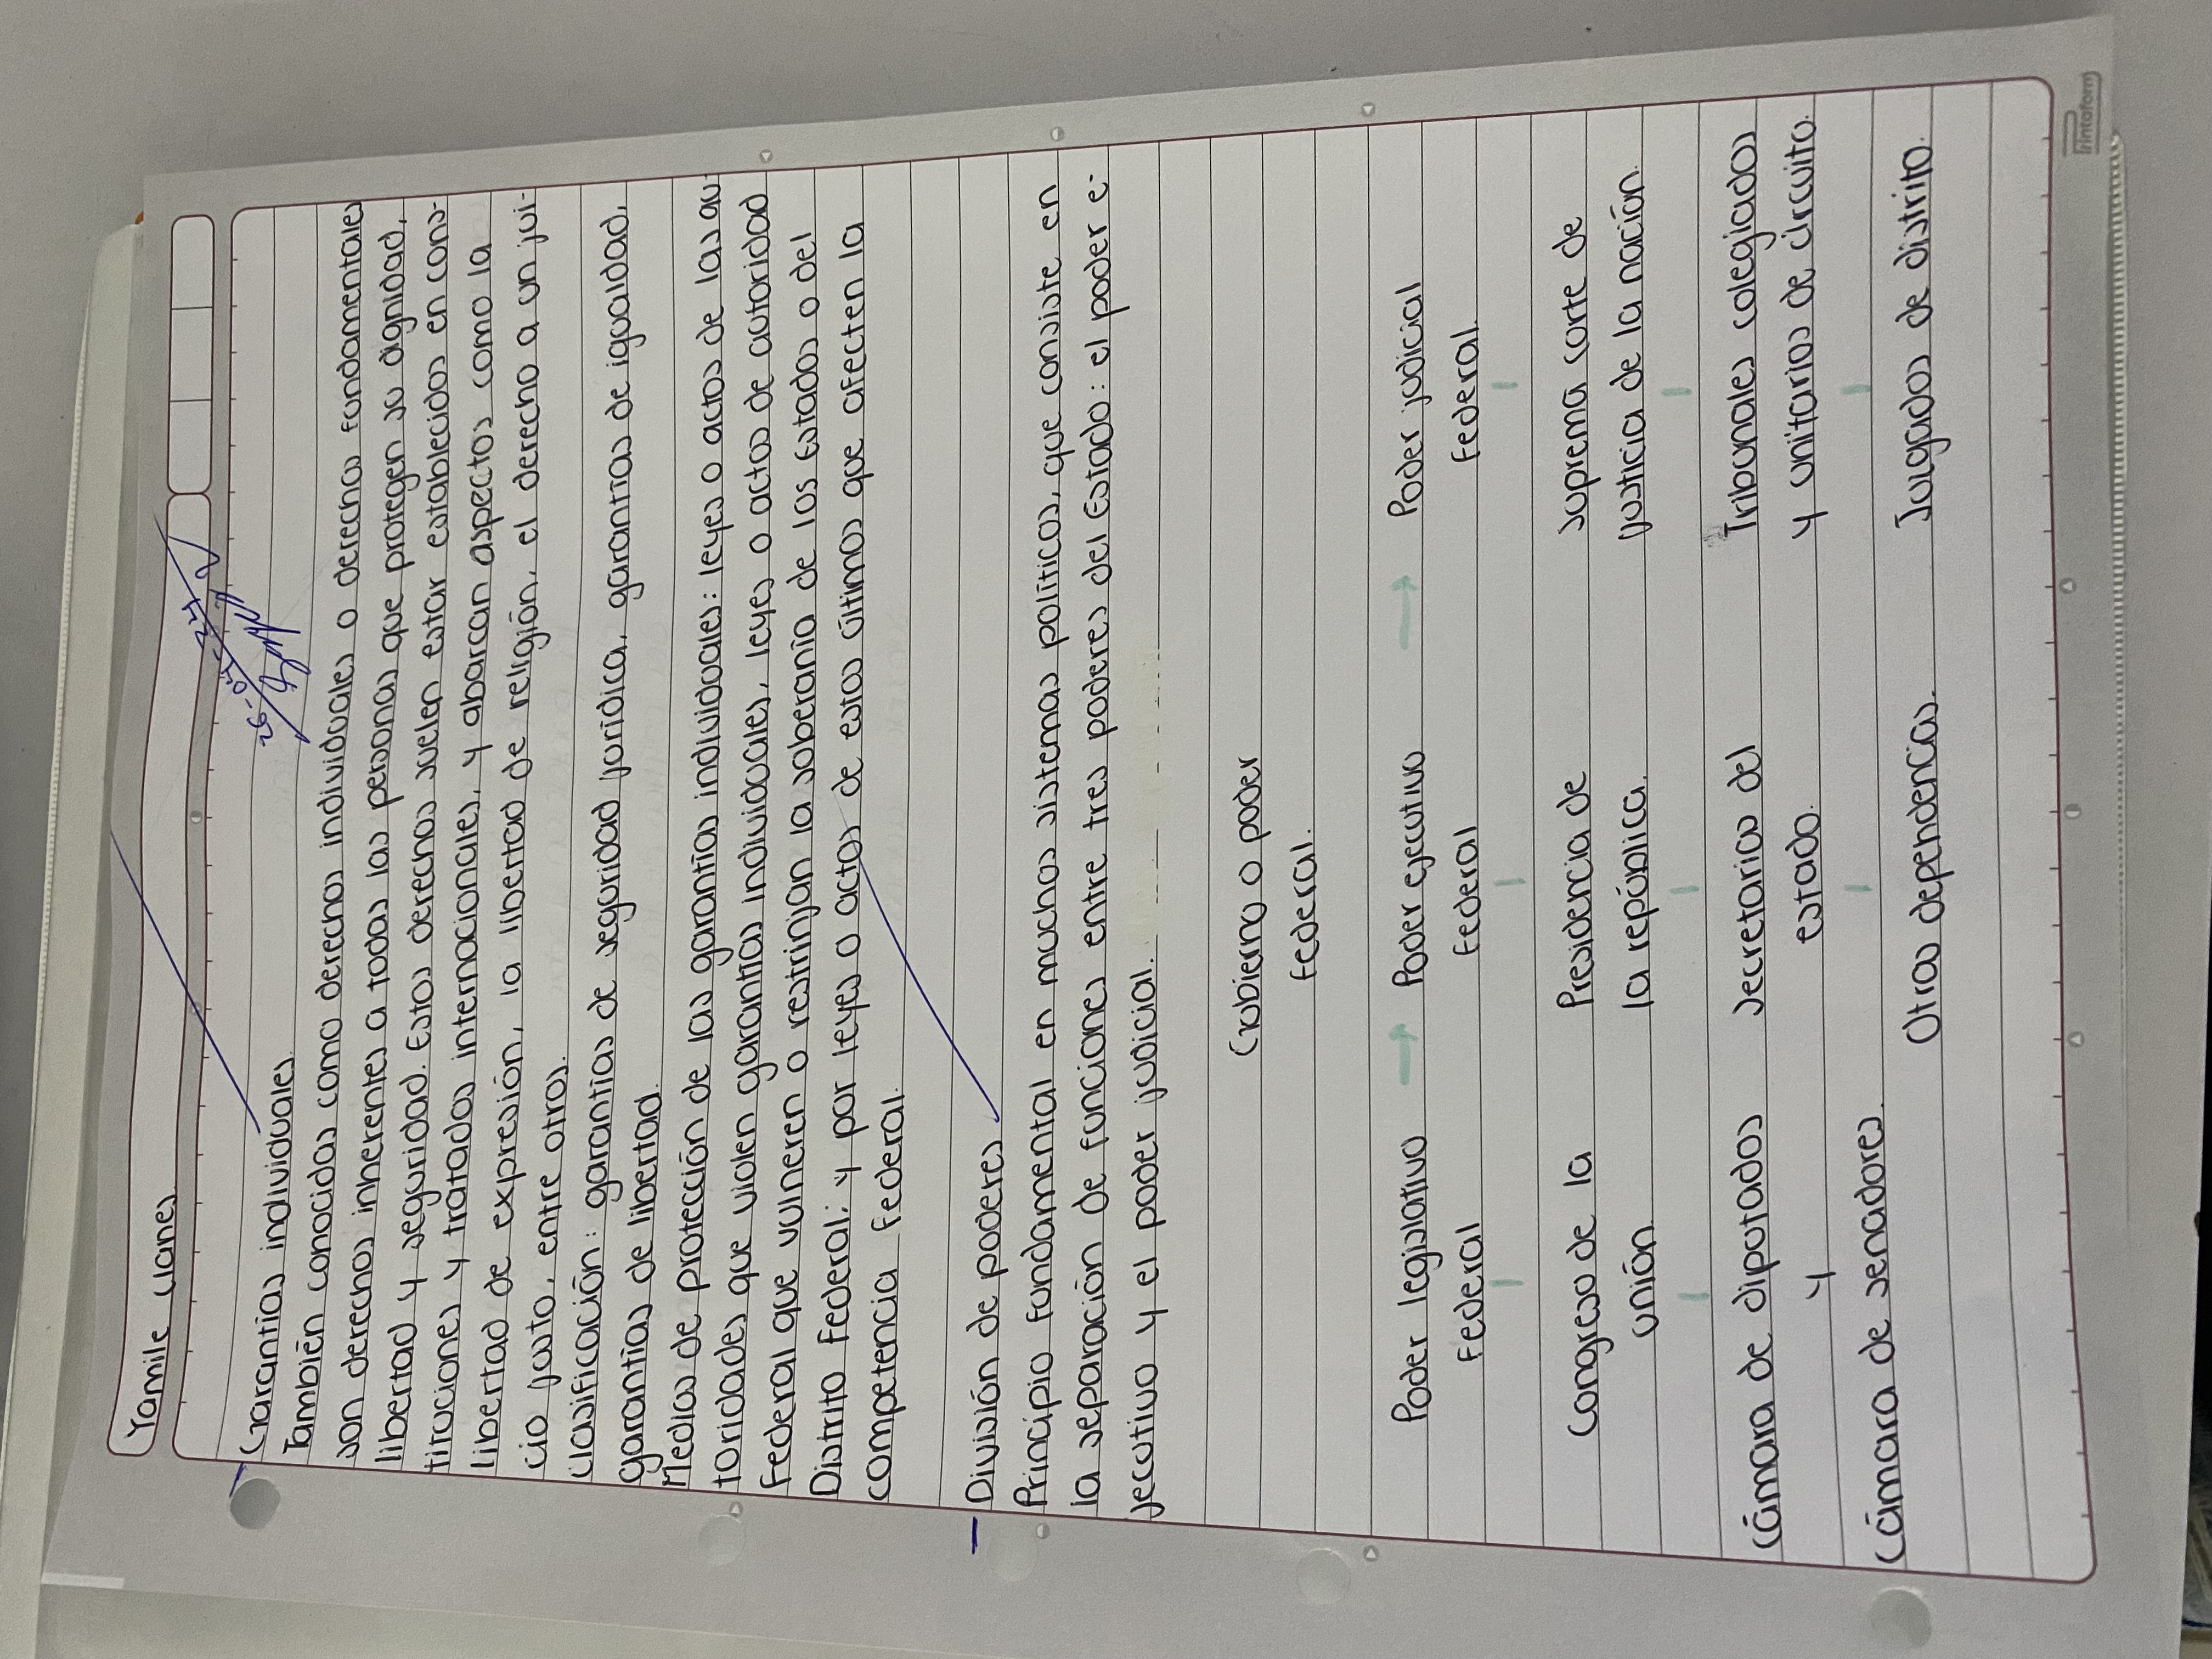 Yamile Llanes
26-04-24
Garantías individuales.
También conocidas como derechos individuales o derechos fundamentales
son derechos inherentes a todas las personas que protegen su dignidad,
libertad y seguridad. Estos derechos suelen estar establecidos en cons-
tituciones y tratados internacionales, y abarcan aspectos como la
libertad de expresión, la libertad de religión, el derecho a un jui-
cio justo, entre otros.
Clasificación: garantías de seguridad jurídica, garantías de igualdad,
garantías de libertad.
Medios de protección de las garantías individuales: leyes o actos de las au-
toridades que violen garantías individuales, leyes o actos de autoridad
Federal que vulneren o restrinjan la soberanía de los Estados o del
Distrito Federal; y por leyes o actos de estos últimos que afecten la
competencia Federal.
División de poderes
Principio fundamental en muchos sistemas políticos, que consiste en
la separación de funciones entre tres poderes del Estado: el poder e-
jecutivo y el poder judicial.
Gobierno o poder
Federal.
Poder legislativo → Poder ejecutivo → Poder judicial
Federal Federal Federal.
Congreso de la Presidencia de suprema corte de
unión la república. justicia de la nación.
Cámara de diputados secretarios del Tribunales colegiados
y estado. y unitarios de circuito.
Cámara de senadores. Otras dependencias. Juzgados de distrito.
Printaform